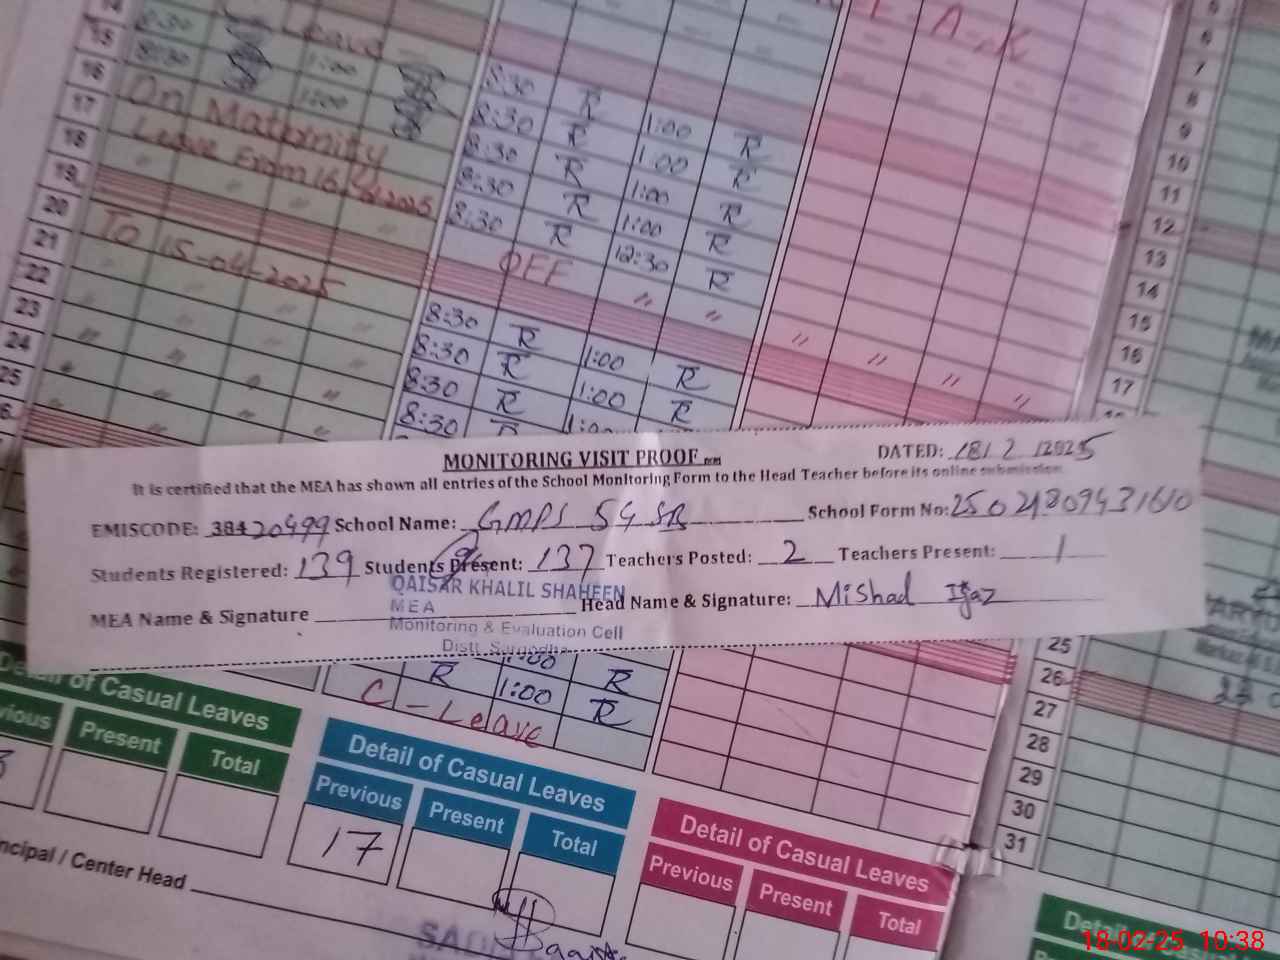 14
15
16
17
18
19
20
21
22
23
24
25
8:30 Leave
8:30 1:00
1:00
On Maternity
Leave From 16
2025
To 15-04-2025
8:30 R 1:00 R
8:30 R 1:00 R
8:30 R 1:00 R
8:30 R 1:00 R
8:30 R 12:30 R
OFF " "
8:30 R 1:00 R
8:30 R 1:00 R
8:30 R
8:30 R
" " " "
5
6
7
8
9
10
11
12
13
14
15
16
17
MONITORING VISIT PROOF
DATED: 18/2/2025
It is certified that the MEA has shown all entries of the School Monitoring Form to the Head Teacher before its online submission
EMISCODE: 38420499 School Name: GMPS 54 SB School Form No:
Students Registered: 139 Students Present: 137 Teachers Posted: 2 Teachers Present: 1
QAISAR KHALIL SHAHEEN
MEA
Monitoring & Evaluation Cell
Distt. Sargodha
MEA Name & Signature Head Name & Signature: Mishad Ijaz
1:00
R 1:00 R
C-Leave R
25
26
27
28
29
30
31
Detail of Casual Leaves
Previous Present Total
Detail of Casual Leaves
Previous Present Total
17
Detail of Casual Leaves
Previous Present Total
Principal / Center Head
Detail of Casual
18-02-25 10:38